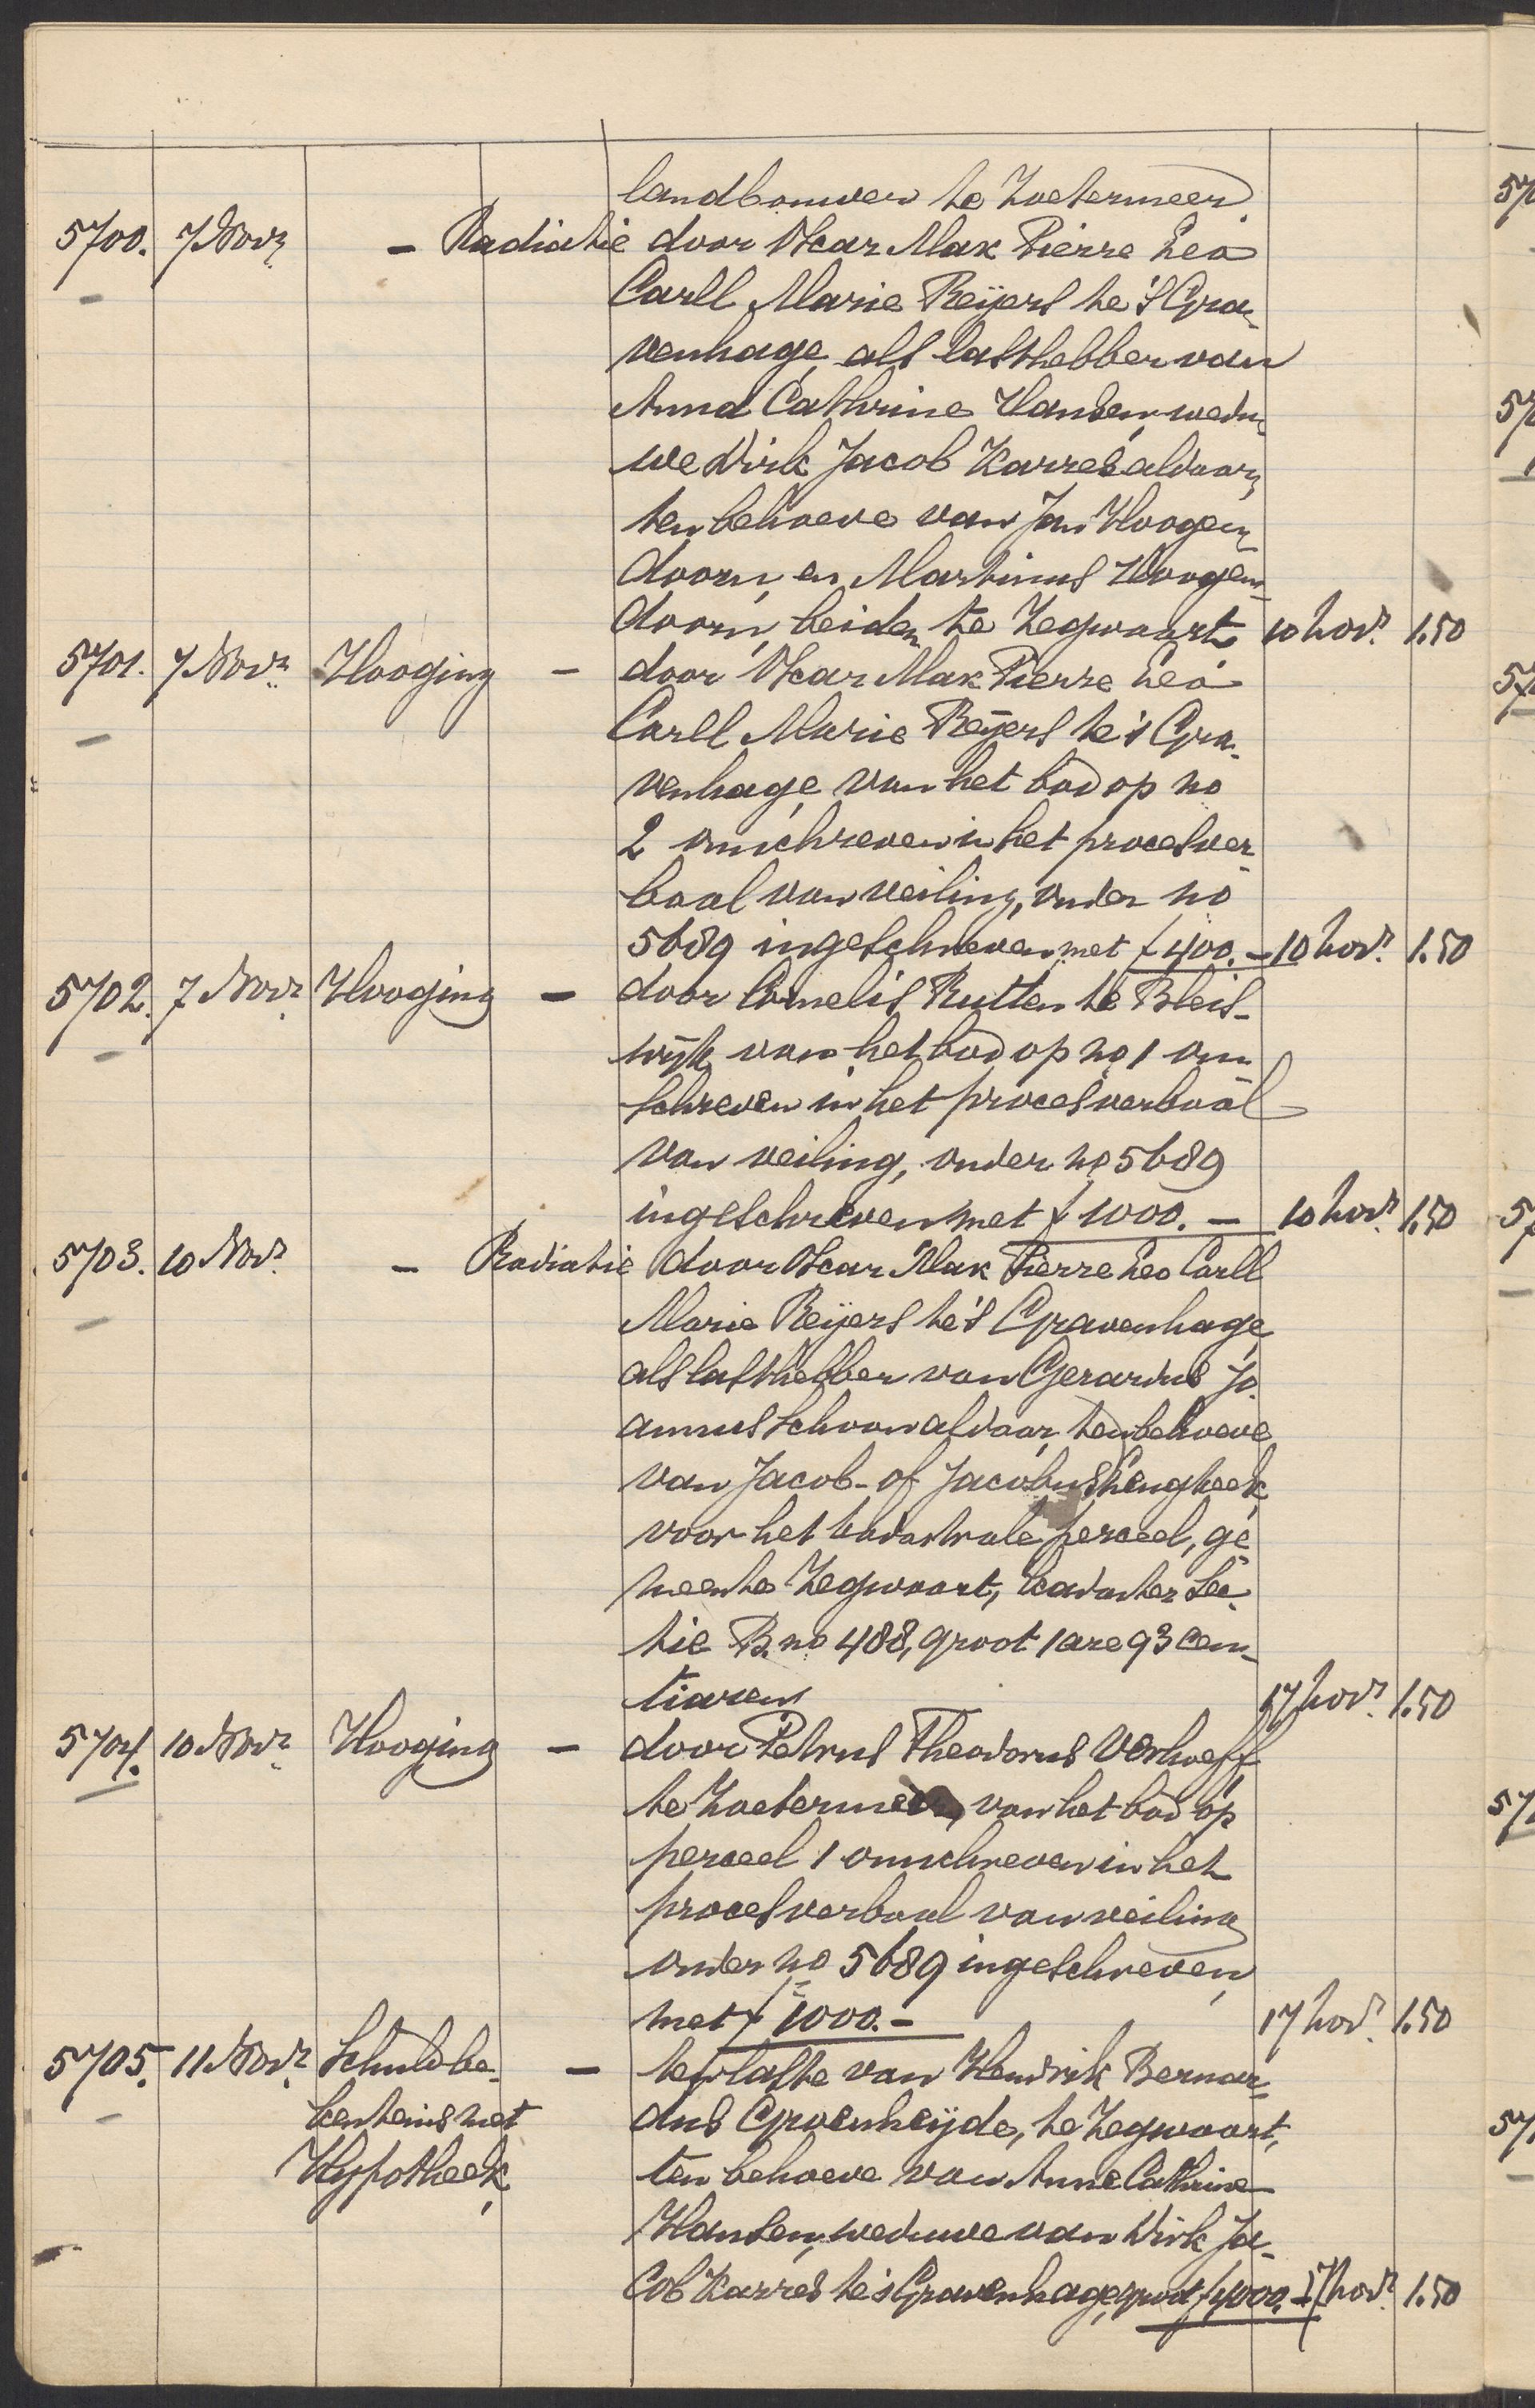 landbouwer te Zoetermeer
5700. 7 Novr. - Radiatie door Oscar Max Pierre Leo
Carll Marie Reijers te 's Gra-
venhage, als lasthebber van
Anna Cathrine Hansen, wedu-
we Dirk Jacob Karres aldaar,
ten behoeve van Jan Hoogen-
doorn, en Martinus Hoogen-
doorn, beiden te Zegwaart 10 Novr. 1.50
5701. 7 Novr. Hooging - door Oscar Max Pierre Leo
Carll Marie Reijers te 's Gra-
venhage van het bod op no
2 omschreven in het procesver-
baal van veiling, onder no
5689 ingeschreven met f 400.- 10 Novr. 1.50
5702. 7 Novr. Hooging - door Cornelis Rutten te Bleis-
wijk van het bod op no 1 om-
schreven in het procesverbaal
van veiling, onder no 5689
ingeschreven met f 1000.- 10 Novr. 1.50
5703. 10 Novr. - Radiatie door Oscar Max Pierre Leo Carll
Marie Reijers te 's Gravenhage,
als lasthebber van Gerardus Jo-
annus Schoon aldaar, ten behoeve
van Jacob- of Jacobus
voor het kadastrale perceel, ge-
meente Zegwaart, kadaster Sec-
tie B. no 488, groot 1 are 93 cen-
tiaren 17 Novr. 1.50
5704. 10 Novr. Hooging - door Petrus Theodorus Verhoeff
te Zoetermeer, van het bod op
perceel 1 omschreven in het
procesverbaal van veiling
onder no 5689 ingeschreven,
met f 1000.- 17 Novr. 1.50
5705. 11 Novr. Schuldbe- - ten laste van Hendrik Bernar-
kentenis met dus Groenheijde, te Zegwaart,
Hypotheek, ten behoeve van Anne Cathrine
Hansen, weduwe van Dirk Ja-
cob Karres te 's Gravenhage, groot f 4000.- 17 Novr. 1.50